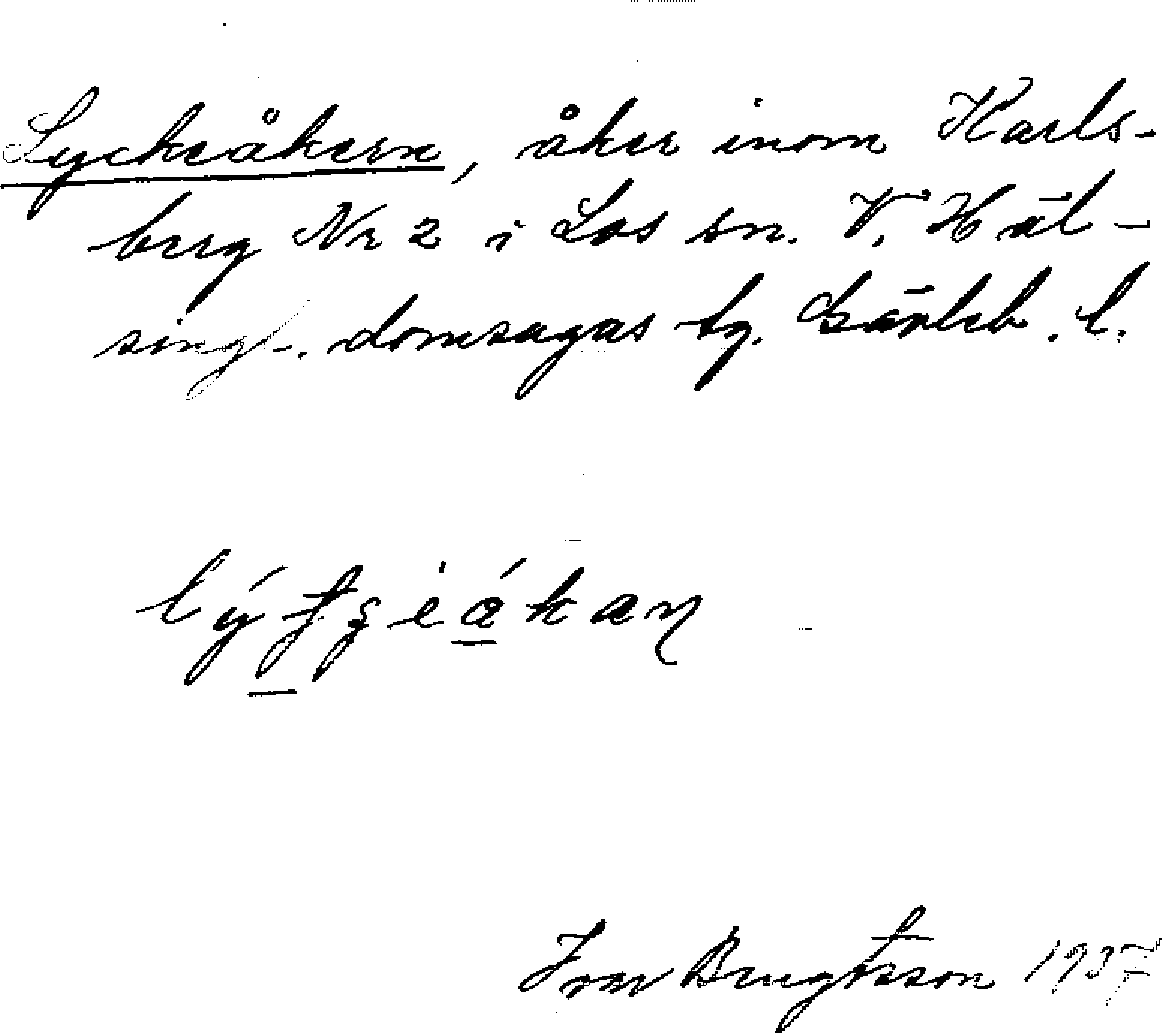 Lyckeåkern, åker inom Karls-
berg Nr 2 i Los sn. V. Häl-
sing-. domsagas tg. Gävleb. l.
Ivar Bengtsson 1937